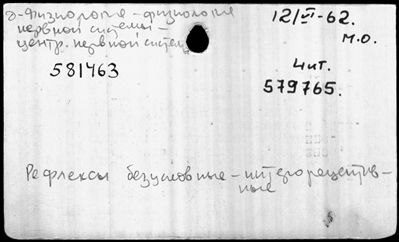 δ-Физиология - физиология
нервной системы -
центр. нервной систем
12/VI-62.
м.о.
581463
Чит.
579765.
Рефлексы безусловные - интерорецептив-
ные